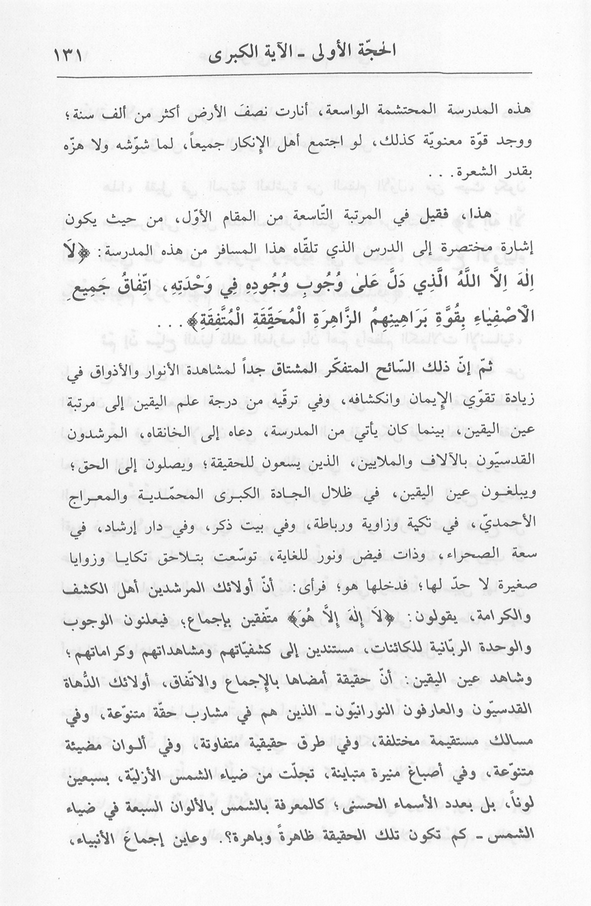 الحجّة الأولى - الآية الكبرى ١٣١
هذه المدرسة المحتشمة الواسعة، أنارت نصفَ الأرض أكثر من ألف سنة؛
ووجد قوّة معنويّة كذلك، لو اجتمع أهل الإنكار جميعاً، لما شوّشه ولا هزّه
بقدر الشعرة. . .
هذا، فقيل في المرتبة التّاسعة من المقام الأوّل، من حيث يكون
إشارة مختصرة إلى الدرس الذي تلقّاه هذا المسافر من هذه المدرسة: ﴿لَا
اِلٰهَ اِلاَّ اللّٰهُ الَّذِي دَلَّ عَلىٰ وُجُوبِ وُجُودِهِ فِي وَحْدَتِهِ، اتِّفاقُ جَمِيعِ
الْاَصْفِيَاءِ بِقُوَّةِ بَرَاهِينِهِمُ الزَّاهِرَةِ الْمُحَقَّقَةِ الْمُتَّفَقَةِ﴾. . .
ثمّ إنّ ذلك السّائح المتفكّر المشتاق جداً لمشاهدة الأنوار والأذواق في
زيادة تقوّي الإيمان وانكشافه، وفي ترقّيه من درجة علم اليقين إلى مرتبة
عين اليقين، بينما كان يأتي من المدرسة، دعاه إلى الخانقاه، المرشدون
القدسيّون بالآلاف والملايين، الذين يسعون للحقيقة؛ ويصلون إلى الحق؛
ويبلغـون عين اليقين، في ظلال الجادة الكبرى المحمّـدية والمعـراج
الأحمديّ، في تكية وزاوية ورباطة، وفي بيت ذكر، وفي دار إرشاد، في
سعة الصحراء، وذات فيض ونور للغاية، توسّعت بتـلاحق تكايـا وزوايا
صغيرة لا حدّ لها؛ فدخلها هو؛ فرأى: أنّ أولائك المرشدين أهل الكشف
والكرامة، يقولون: ﴿لَا إِلٰهَ إِلاَّ هُوَ﴾ متّفقين بإجماع؛ فيعلنون الوجوب
والوحدة الربّانية للكائنات، مستندين إلى كشفيّاتهم ومشاهداتهم وكراماتهم؛
وشاهد عين اليقين: أنّ حقيقة أمضاها بالإجماع والاتّفاق، أولائك الدُّهاة
القدسيّون والعارفون النورانيّون ـ الذين هم في مشارب حقّة متنوّعة، وفي
مسالك مستقيمة مختلفة، وفي طرق حقيقية متفاوتة، وفي ألـوان مضيئة
متنوّعة، وفي أصباغ منيرة متباينة، تجلّت من ضياء الشمس الأزليّة، بسبعين
لوناً، بل بعدد الأسماء الحسنى؛ كالمعرفة بالشمس بالألوان السبعة في ضياء
الشمس ـ كم تكون تلك الحقيقة ظاهرةً وباهرة؟. وعاين إجماعَ الأنبياء،